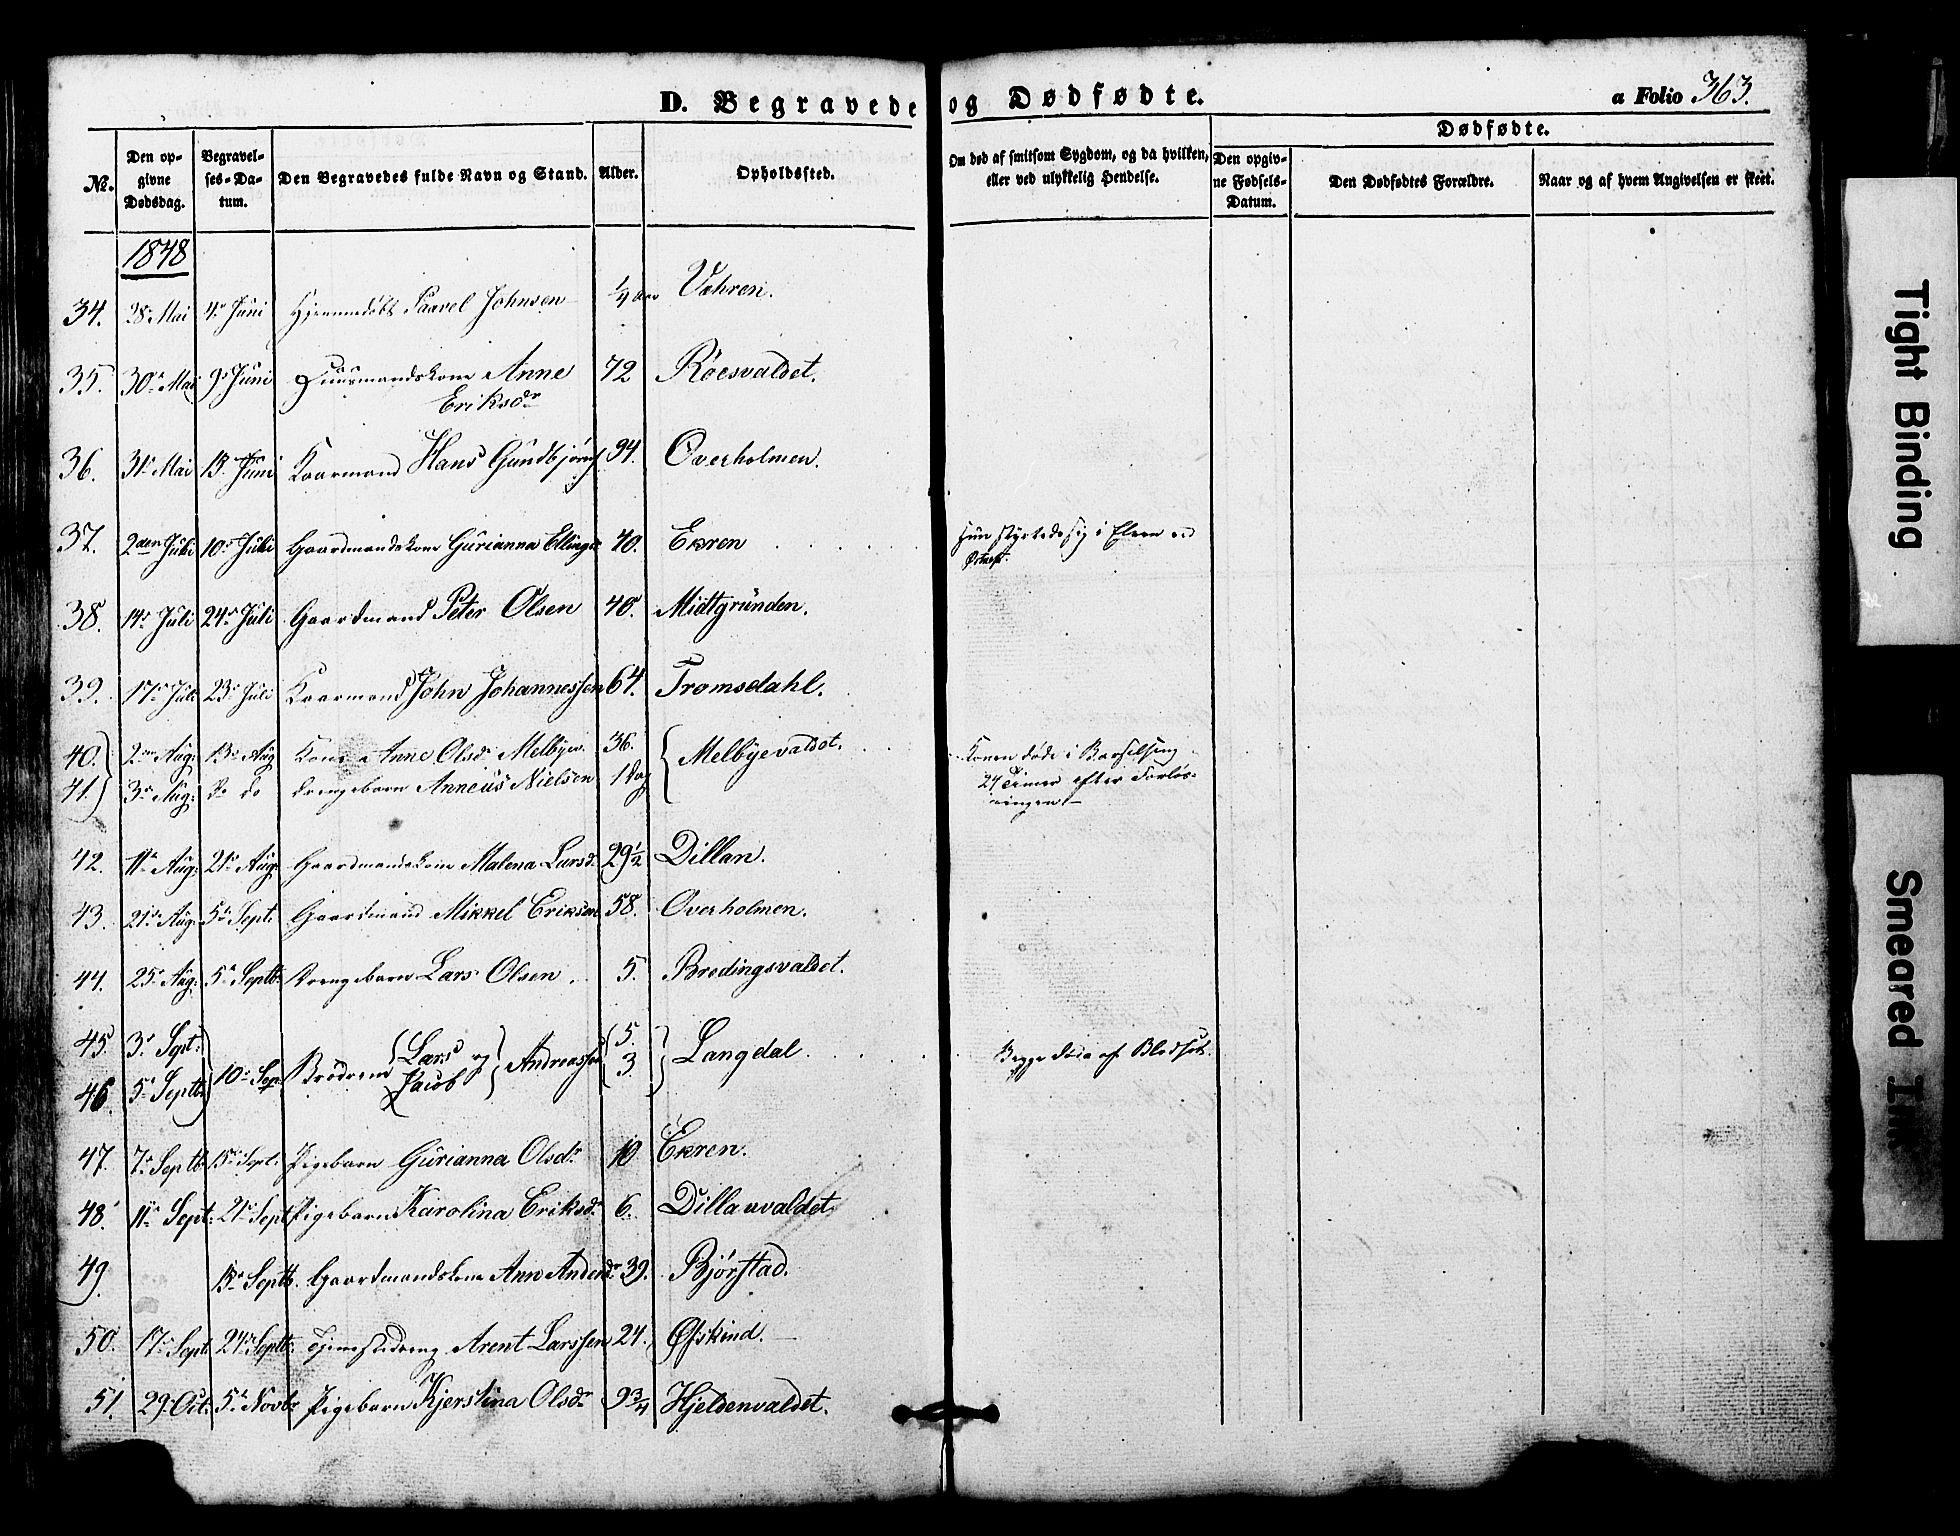 D. Begravede og Dødfødte.
a Folio 363.
Dødfødte.
№. Den opgivne Dødsdag. Begravelses-Datum. Den Begravedes fulde Navn og Stand. Alder. Opholdssted. Om død af smitsom Sygdom, og da hvilken, eller ved ulykkelig Hendelse. Den opgivne Fødsels-Datum. Den Dødfødtes Forældre. Naar og af hvem Angivelsen er skeet.
1848
34. 28. Mai 4. Juni Hjemmedøbt Paavel Johnsen 1/4 Aar Vehren.
35. 30. Mai 9. Juni Huusmandskone Anne 72 Røesvaldet.
Eriksdr
36. 31. Mai 13. Juni Kaarmand Hans Gundbjørns. 94. Overholmen.
37. 2den Juli 10. Juli Gaardmandskone Gurianna Ellings 40. Ekren Hun styrtede sig i Elven
38. 14. Juli 24. Juli Gaardmand Peter Olsen 40. Midtgrunden.
39. 17. Juli 23. Juli Kaarmand John Johannessen 64. Tromsdahl.
40. 2. Aug. 13. Aug Kone Anne Olsd. Melbye 36. Melbyevaldet. Konen døde i Barselseng
41. 3. Aug: do do Drengebarn Anneus Nielsen 1 dag 24 Timer efter Forløs-
ningen.
42. 11. Aug. 21. Aug. Gaardmandskone Malena Larsd. 29 1/2 Dillan.
43. 21. Aug. 3. Sept. Gaardmand Mikkel Eriksen 58. Overholmen.
44. 25. Aug. 5. Septb. Drengebarn Lars Olsen. 5. Bredingsvaldet.
45. 3. Sept: 10. Sep. Brødrene Lars og Andreassen 5. Langdal. Begge døde af Blodsot.
46. 5. Septb: Jacob 3.
47. 7. Septb 15. Sept. Pigebarn Gurianna Olsdr 10 Ekren.
48. 11. Sept: 21. Sept Pigebarn Karolina Eriksd. 6. Dillanvaldet.
49. 13. Septb. Gaardmandskone Ann Andersdr 39. Bjørstad.
50. 17. Sept 24. Septb. Tjenestedreng Arent Larssen 24. Øfskind.
51. 29. Oct. 5. Novbr Pigebarn Kjerstina Olsdr 9 3/4 Hjeldenvaldet.
Tight Binding
Smeared Ink